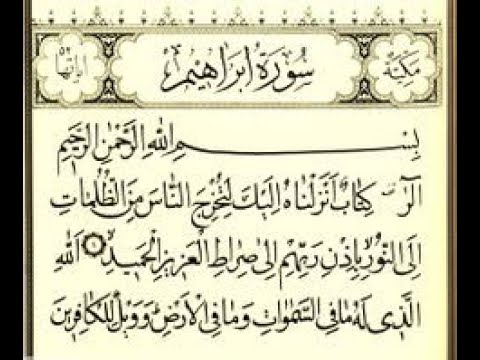 مَكِّيَّة سُورَةُ اِبْرَاهِيم اٰيَاتُهَا
بِسْمِ اللّٰهِ الرَّحْمٰنِ الرَّحِيمِ
الٓرٰ كِتَابٌ اَنْزَلْنَاهُ اِلَيْكَ لِتُخْرِجَ النَّاسَ مِنَ الظُّلُمَاتِ
اِلَى النُّورِ بِاِذْنِ رَبِّهِمْ اِلٰى صِرَاطِ الْعَزِيزِ الْحَمِيدِ ۝ اَللّٰهِ
الَّذِى لَهُ مَا فِى السَّمٰوَاتِ وَمَا فِى الْاَرْضِ وَوَيْلٌ لِلْكَافِرِينَ